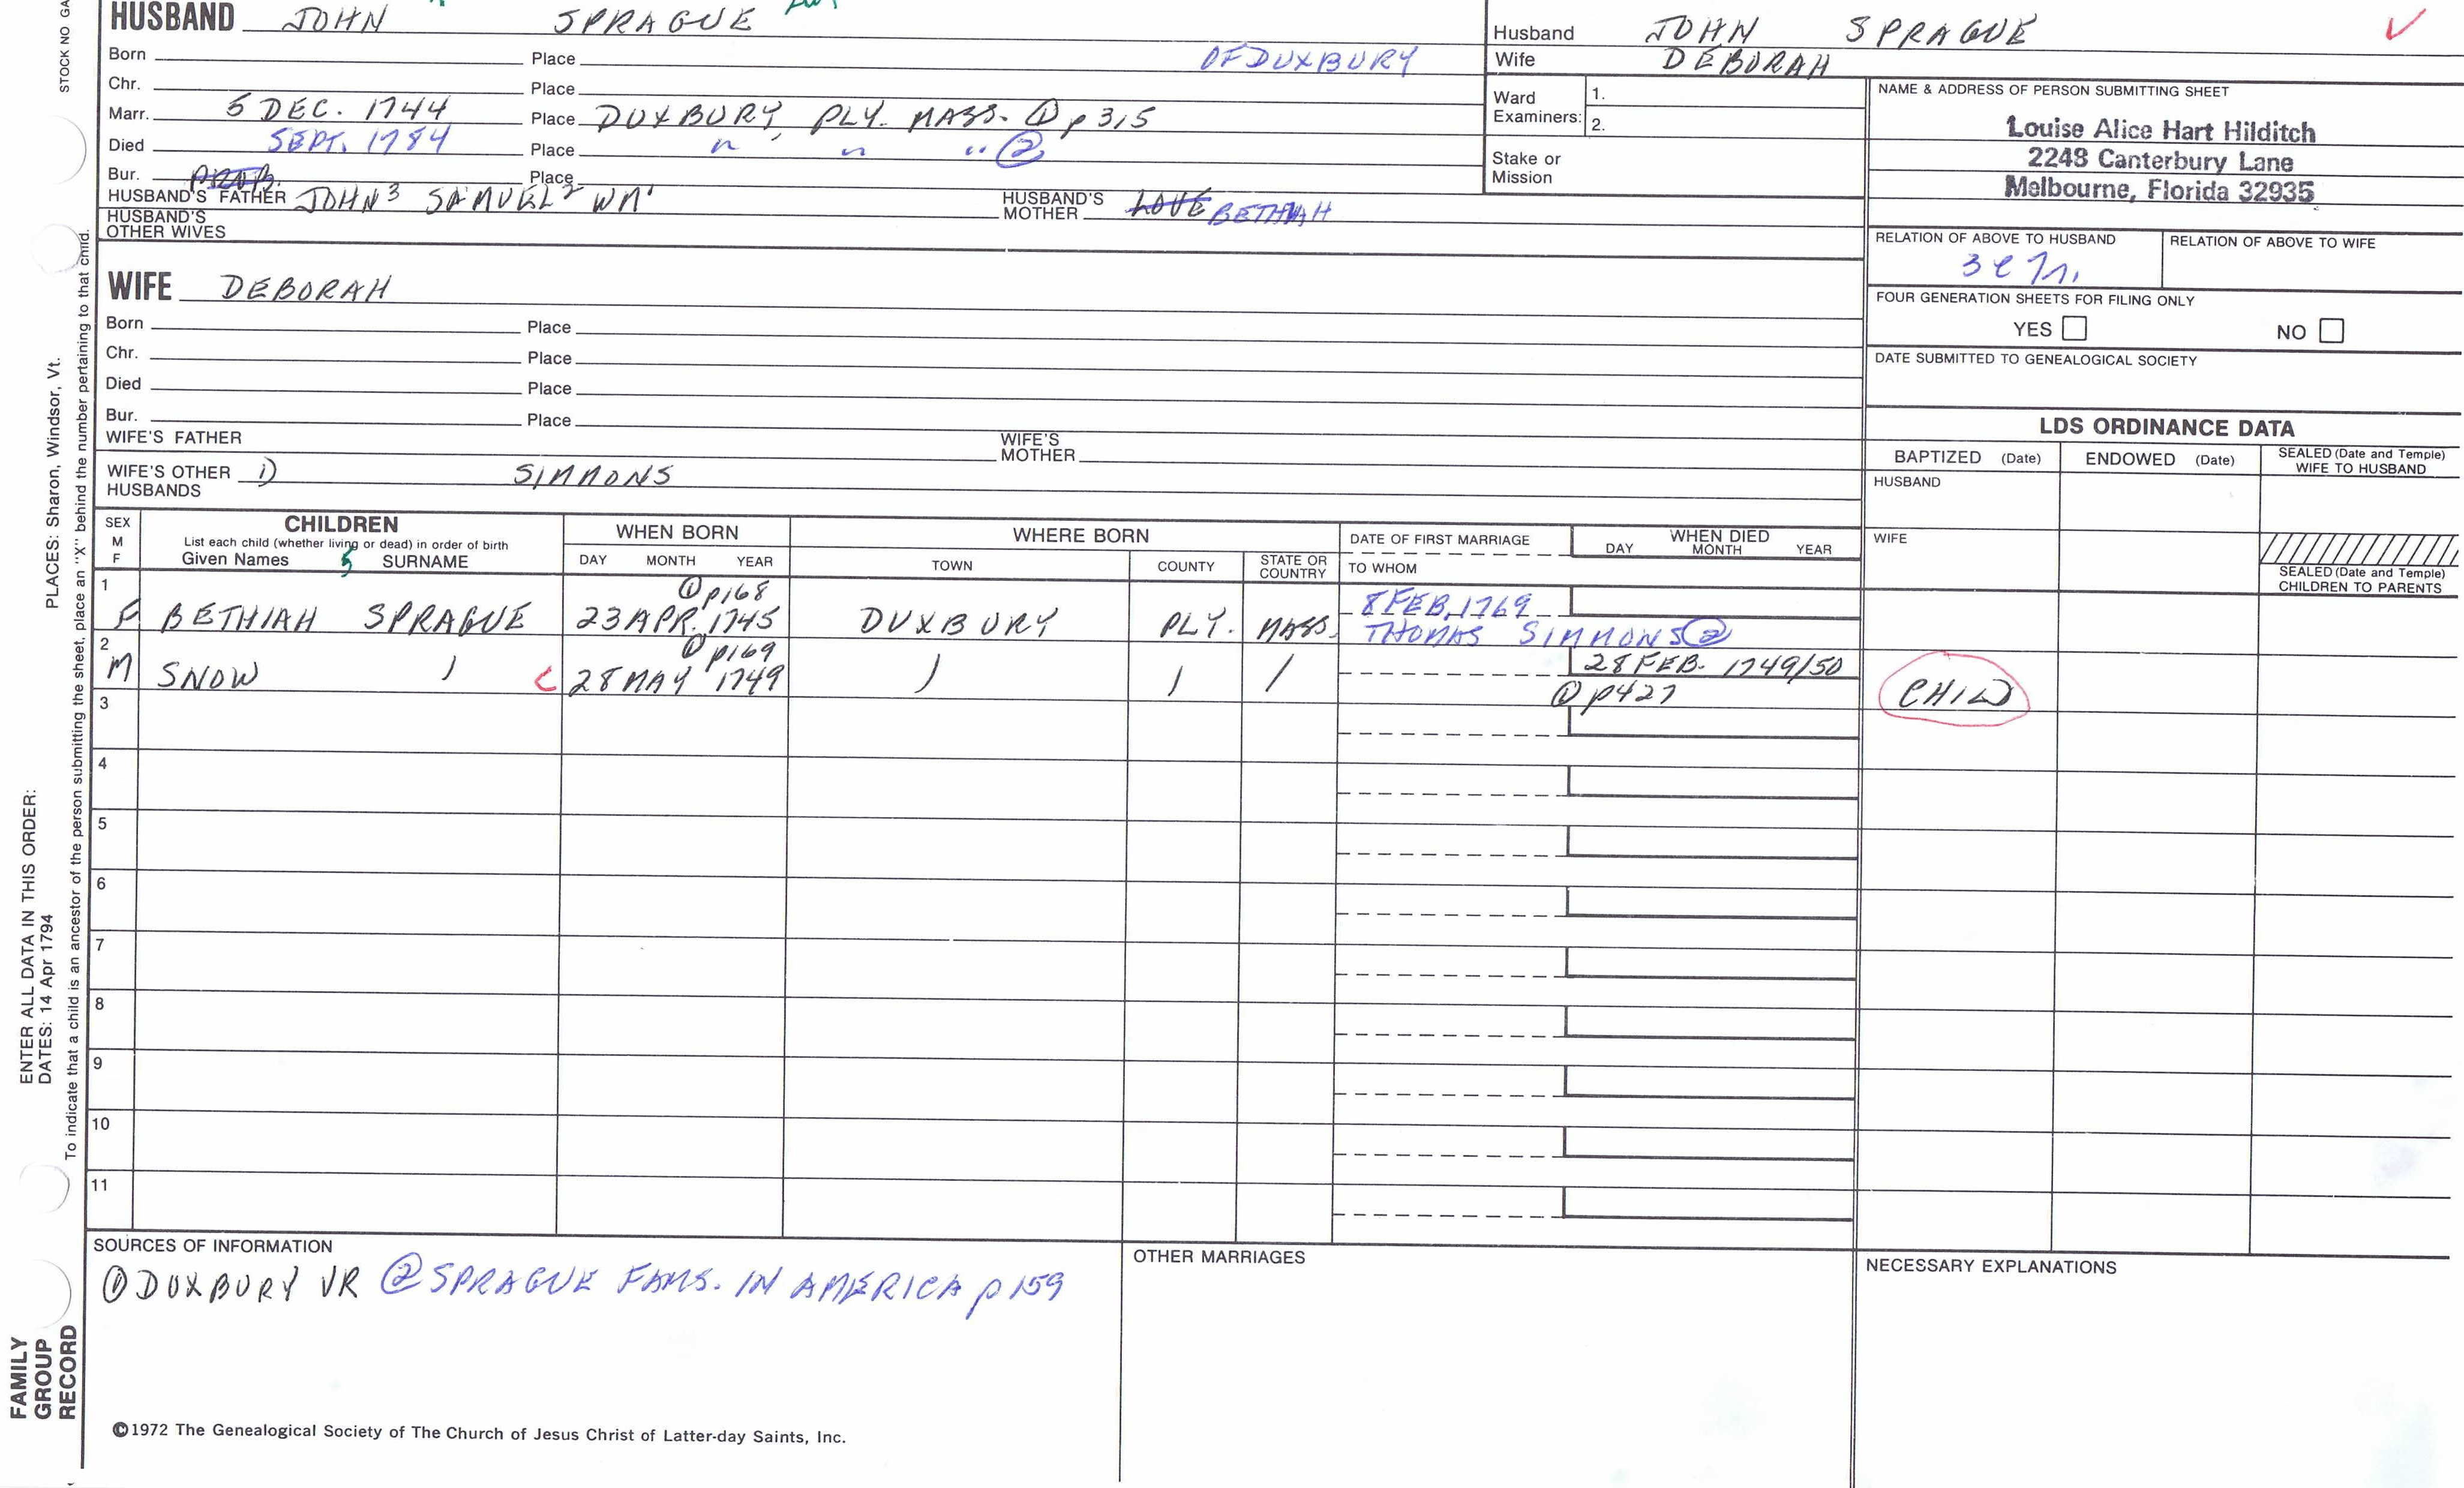 STOCK NO GA
HUSBAND JOHN SPRAGUE
Born Place OF DUXBURY
Chr. Place
Marr. 5 DEC. 1744 Place DUXBURY, PLY. MASS. ① p 315
Died SEPT. 1784 Place " , " " ②
Bur. Place
HUSBAND'S FATHER JOHN³ SAMUEL² WM¹ HUSBAND'S MOTHER LOVE BETHIAH
HUSBAND'S OTHER WIVES
WIFE DEBORAH
Born Place
Chr. Place
Died Place
Bur. Place
WIFE'S FATHER WIFE'S MOTHER
WIFE'S OTHER HUSBANDS 1) SIMMONS
Husband JOHN SPRAGUE ✓
Wife DEBORAH
Ward Examiners: 1.
2.
Stake or Mission
NAME & ADDRESS OF PERSON SUBMITTING SHEET
Louise Alice Hart Hilditch
2248 Canterbury Lane
Melbourne, Florida 32935
RELATION OF ABOVE TO HUSBAND RELATION OF ABOVE TO WIFE
FOUR GENERATION SHEETS FOR FILING ONLY
YES NO
DATE SUBMITTED TO GENEALOGICAL SOCIETY
LDS ORDINANCE DATA
BAPTIZED (Date) ENDOWED (Date) SEALED (Date and Temple) WIFE TO HUSBAND
HUSBAND
WIFE
SEALED (Date and Temple) CHILDREN TO PARENTS
SEX M F
CHILDREN
List each child (whether living or dead) in order of birth
Given Names SURNAME
WHEN BORN
DAY MONTH YEAR
WHERE BORN
TOWN COUNTY STATE OR COUNTRY
DATE OF FIRST MARRIAGE
TO WHOM
WHEN DIED
DAY MONTH YEAR
1 ① p168 8 FEB. 1769
F BETHIAH SPRAGUE 23 APR. 1745 DUXBURY PLY. MASS. THOMAS SIMMONS ②
2 ① p169 28 FEB. 1749/50
M SNOW 28 MAY 1749 ① p427 CHILD
3
4
5
6
7
8
9
10
11
SOURCES OF INFORMATION
① DUXBURY VR ② SPRAGUE FAMS. IN AMERICA p 159
OTHER MARRIAGES
NECESSARY EXPLANATIONS
©1972 The Genealogical Society of The Church of Jesus Christ of Latter-day Saints, Inc.
ENTER ALL DATA IN THIS ORDER:
DATES: 14 Apr 1794
PLACES: Sharon, Windsor, Vt.
To indicate that a child is an ancestor of the person submitting the sheet, place an "X" behind the number pertaining to that child.
FAMILY
GROUP
RECORD